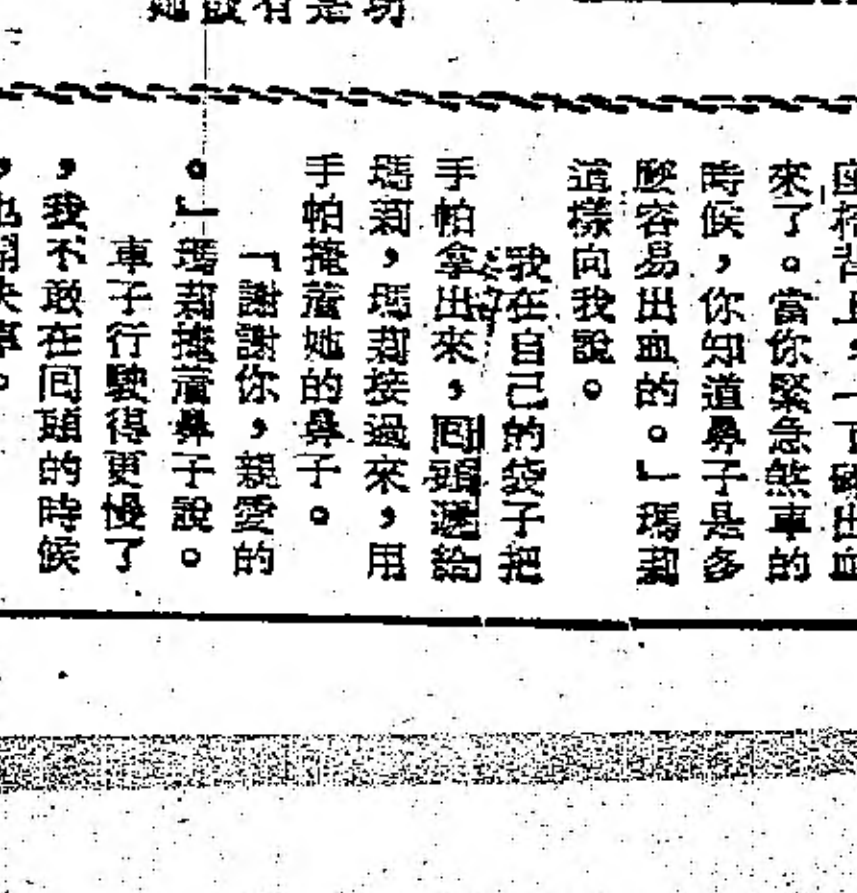 座椅背上，一下碰出血
來了。當你緊急煞車的
時候，你知道鼻子是多
麼容易出血的。」瑪莉
這樣向我說。
我在自己的袋子把
手帕拿出來，回頭遞給
瑪莉，瑪莉接過來，用
手帕掩着她的鼻子。
「謝謝你，親愛的
。」瑪莉掩着鼻子說。
車子行駛得更慢了
，我不敢在回頭的時候
，也開快車。